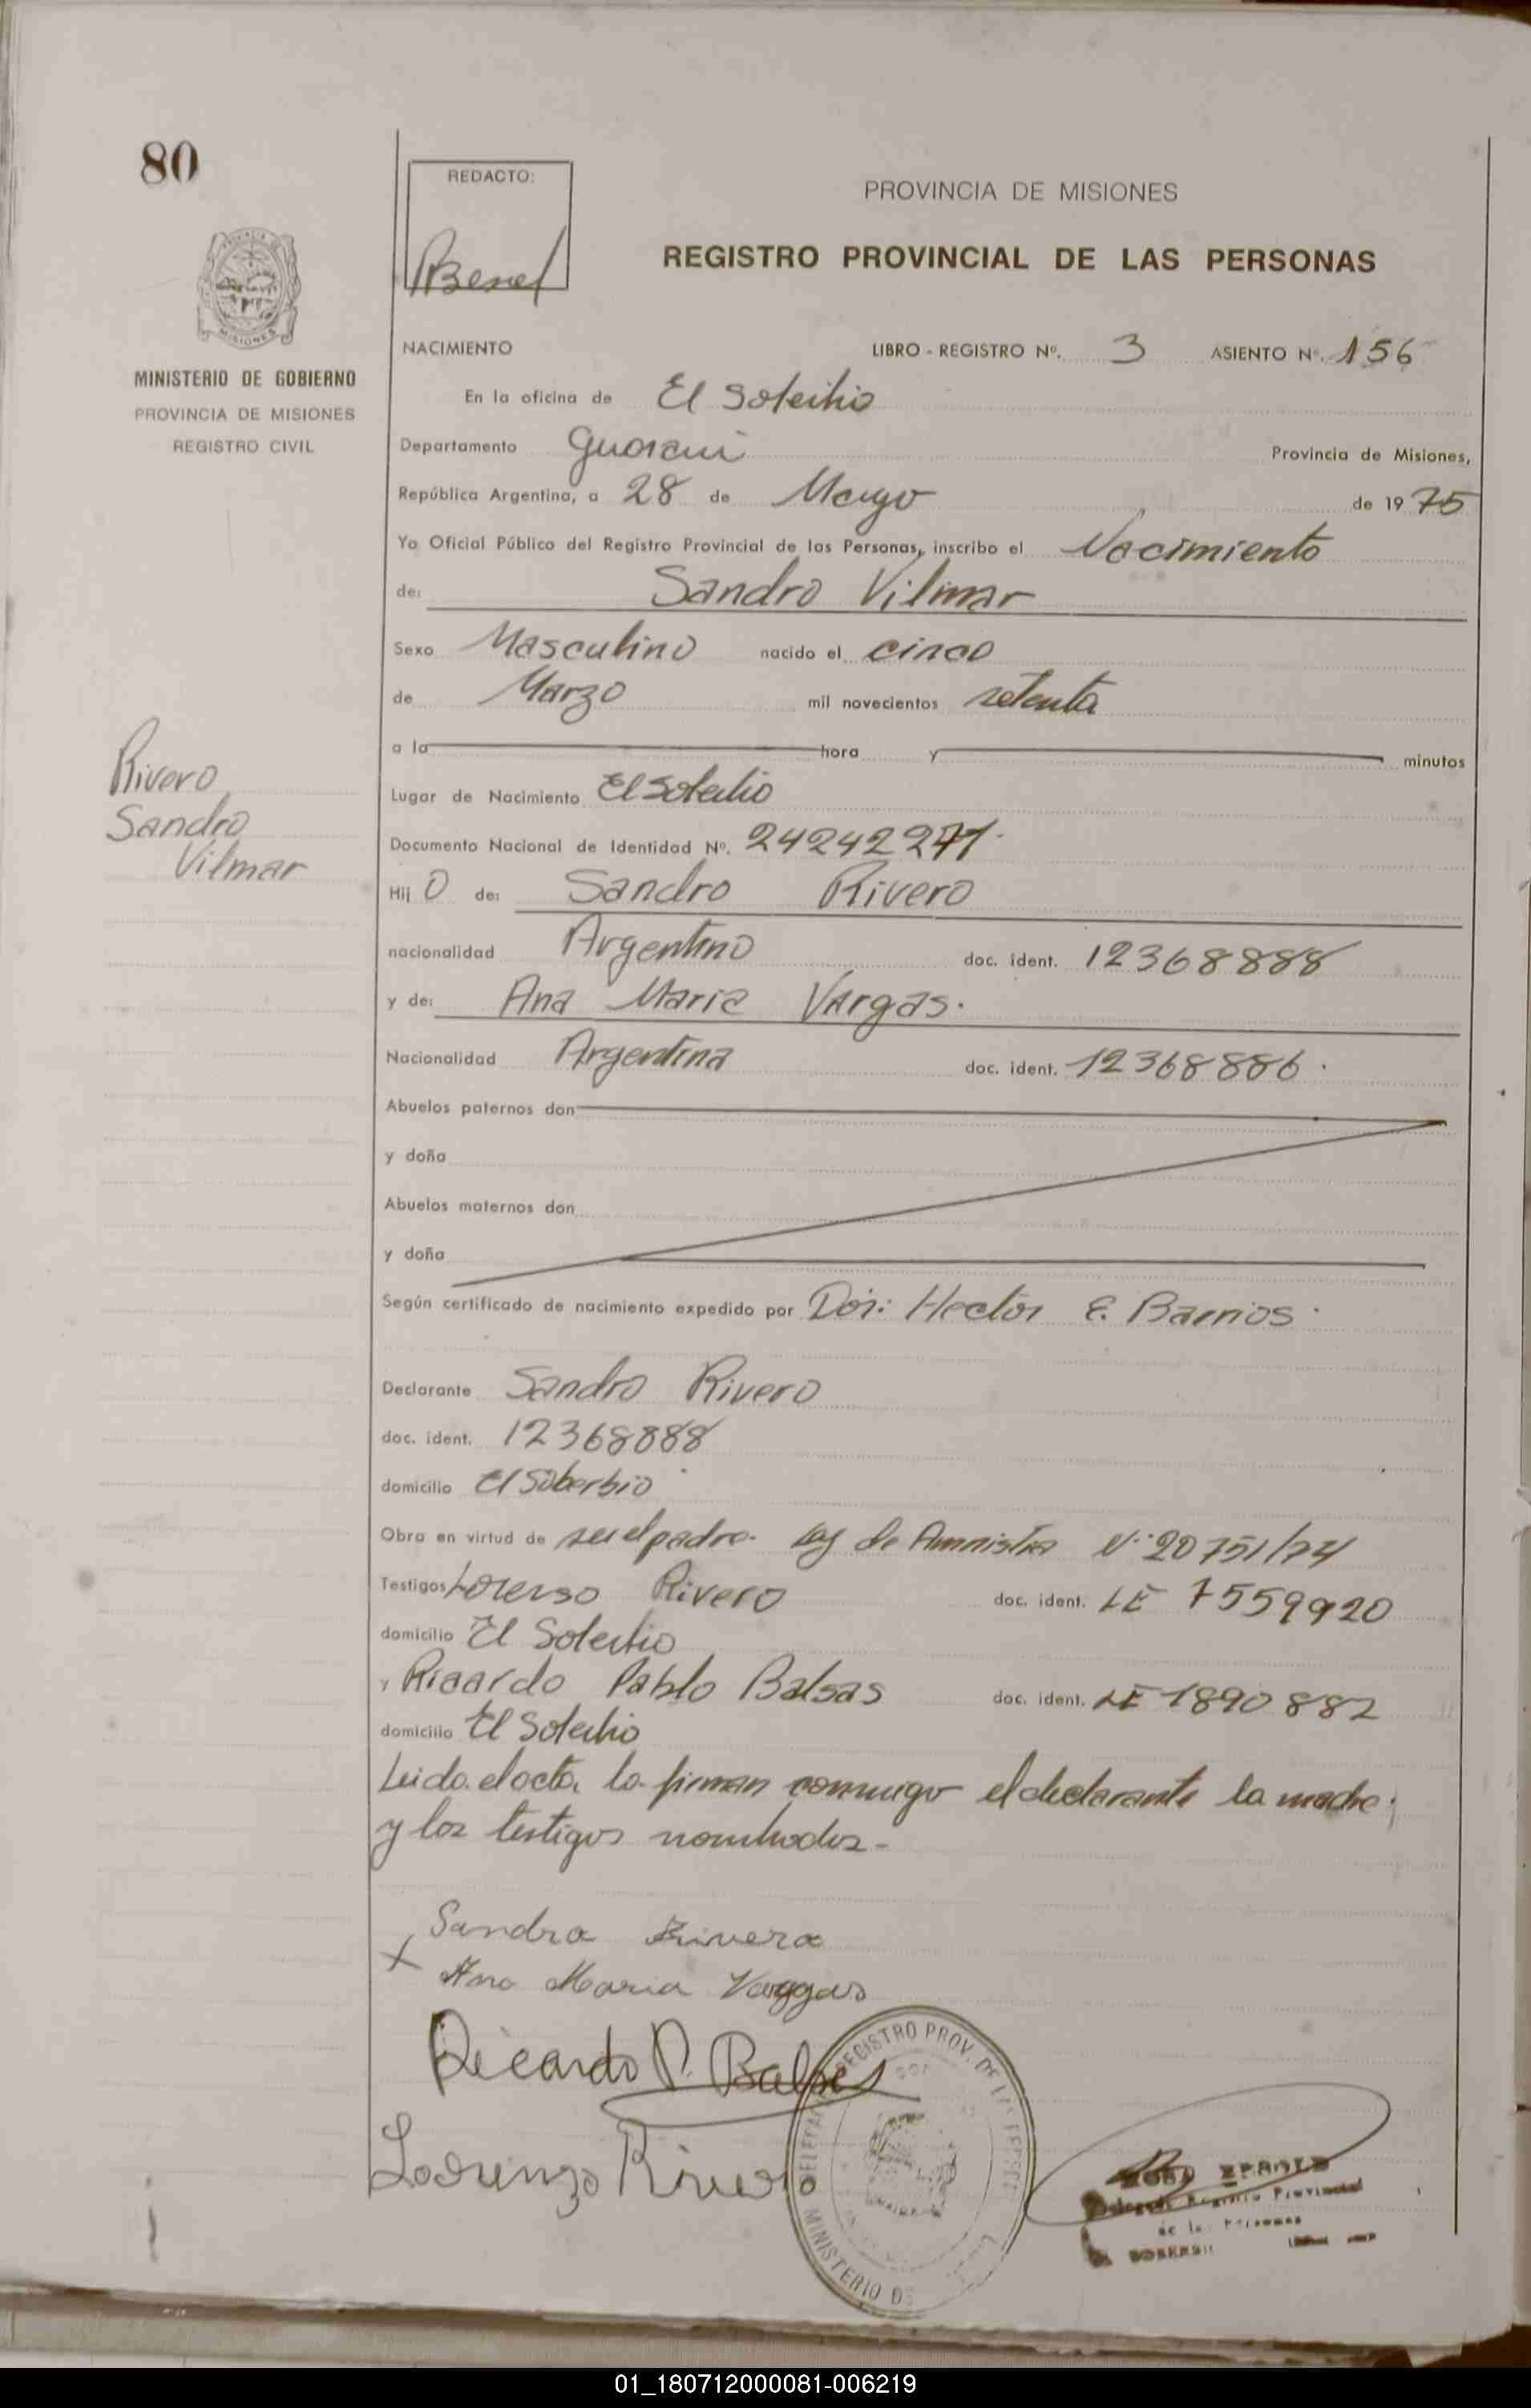 80
REDACTO:
PROVINCIA DE MISIONES
REGISTRO PROVINCIAL DE LAS PERSONAS
MISIONES
MINISTERIO DE GOBIERNO
PROVINCIA DE MISIONES
REGISTRO CIVIL
NACIMIENTO LIBRO - REGISTRO Nº. 3 ASIENTO Nº. 156
En la oficina de El Soberbio
Departamento Guarani Provincia de Misiones,
República Argentina, a 28 de Mayo de 1975
Yo Oficial Público del Registro Provincial de las Personas, inscribo el Nacimiento
de: Sandro Vilmar
Sexo Masculino nacido el cinco
de Marzo mil novecientos setenta
a la hora y minutos
Rivero
Sandro
Vilmar
Lugar de Nacimiento El Soberbio
Documento Nacional de Identidad Nº. 24242271.
Hij o de: Sandro Rivero
nacionalidad Argentino doc. ident. 12368888
y de: Ana Maria Vargas.
Nacionalidad Argentina doc. ident. 12368886.
Abuelos paternos don
y doña
Abuelos maternos don
y doña
Según certificado de nacimiento expedido por Dor: Hector E. Barrios.
Declarante Sandro Rivero
doc. ident. 12368888
domicilio El Soberbio
Obra en virtud de ser el padre. Ley de Amnistia Nº 20751/74
Testigos Lorenso Rivero doc. ident. LE 7559920
domicilio El Soberbio
y Ricardo Pablo Balsas doc. ident. LE 1890882
domicilio El Soberbio
Leido el acta, la firman conmigo el declarante la madre,
y los testigos nombrados-
Sandro Rivero
X Ana Maria Vargas
Ricardo P. Balsas
Lorenzo Rivero
REGISTRO PROV. DE
MINISTERIO DE
Delegado Registro Provincial
de las Personas
01_180712000081-006219